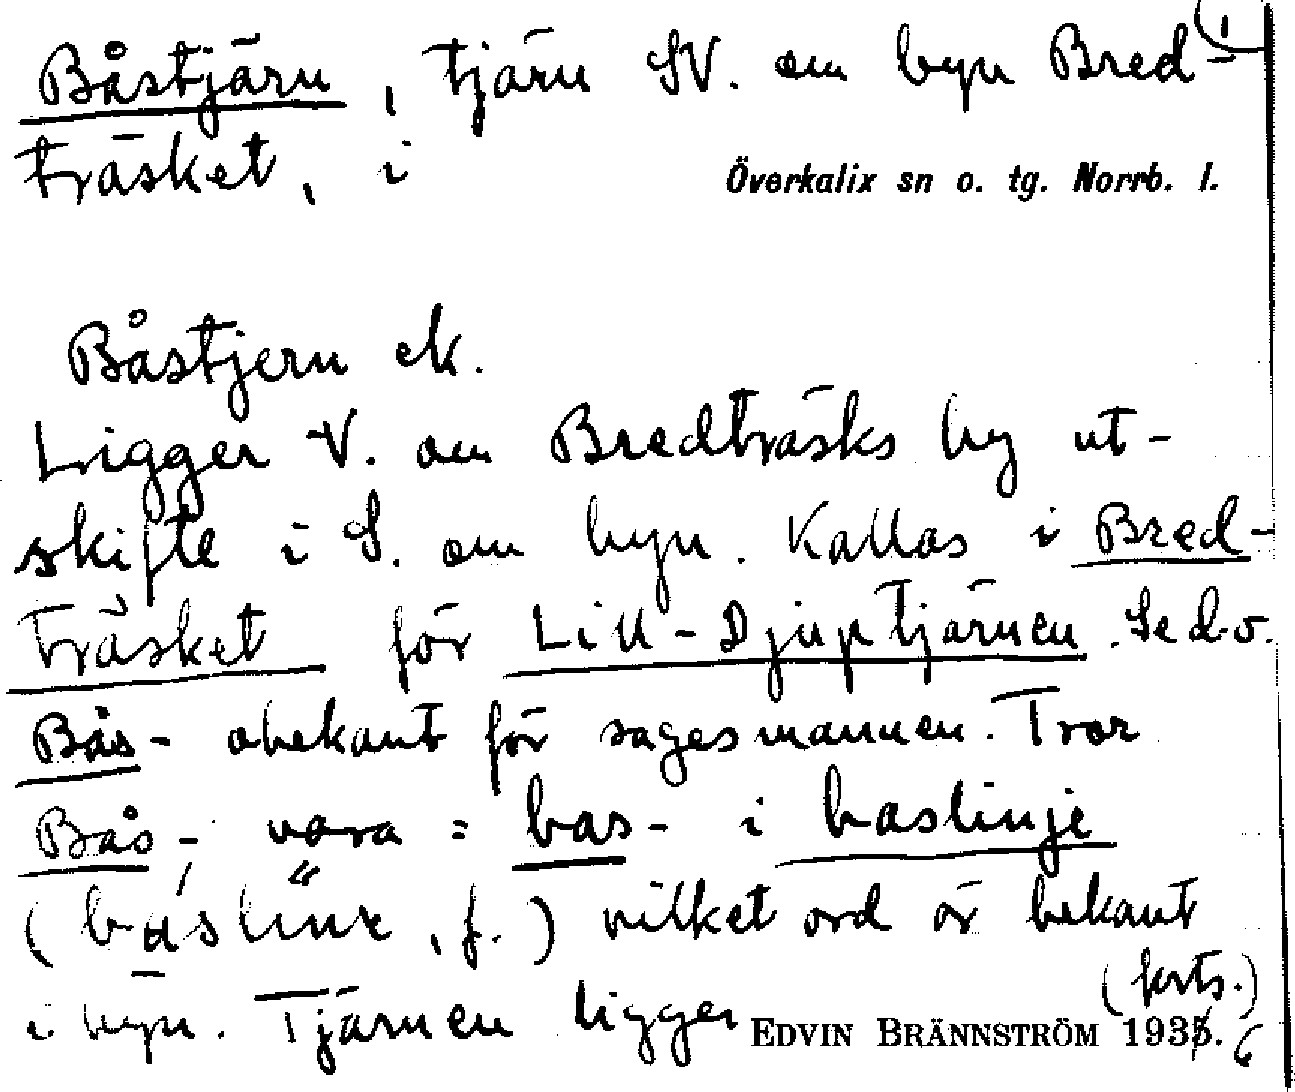 Båstjärn, tjärn SV. om byn Bred- (1
träsket, i Överkalix sn o. tg. Norrb. l.
Båstjern ek.
Ligger V. om Bredträsks by ut-
skifte i S. om byn. Kallas i Bred-
träsket för Lill-Djuptjärnen. Se d.o.
Bås- obekant för sagesmannen. Tror
Bås-, vara = bas- i baslinje
( , f.) vilket ord är bekant
i byn. Tjärnen ligger (forts.)
EDVIN BRÄNNSTRÖM 1935. 6